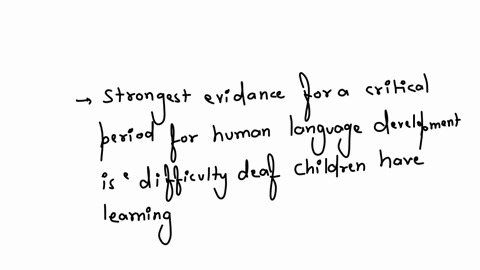 → Strongest evidence for a critical
period for human language development
is • difficulty deaf children have
learning